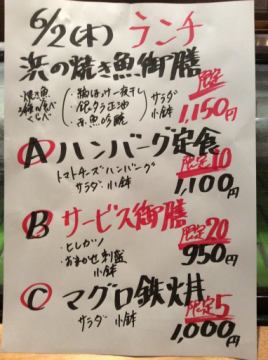 6/2(木) ランチ
浜の焼き魚御膳 限定
・焼き魚
3種の食べくらべ
・縞ほっけ一夜干し
・銀タラ正油
・赤魚吟醸
サラダ
小鉢
1,150円
A ハンバーグ定食
トマトチーズハンバーグ
サラダ 小鉢
限定10
1,100円
B サービス御膳
・ヒレカツ
・おまかせ刺盛
小鉢
限定20
950円
C マグロ鉄火丼
サラダ 小鉢
限定5
1,000円